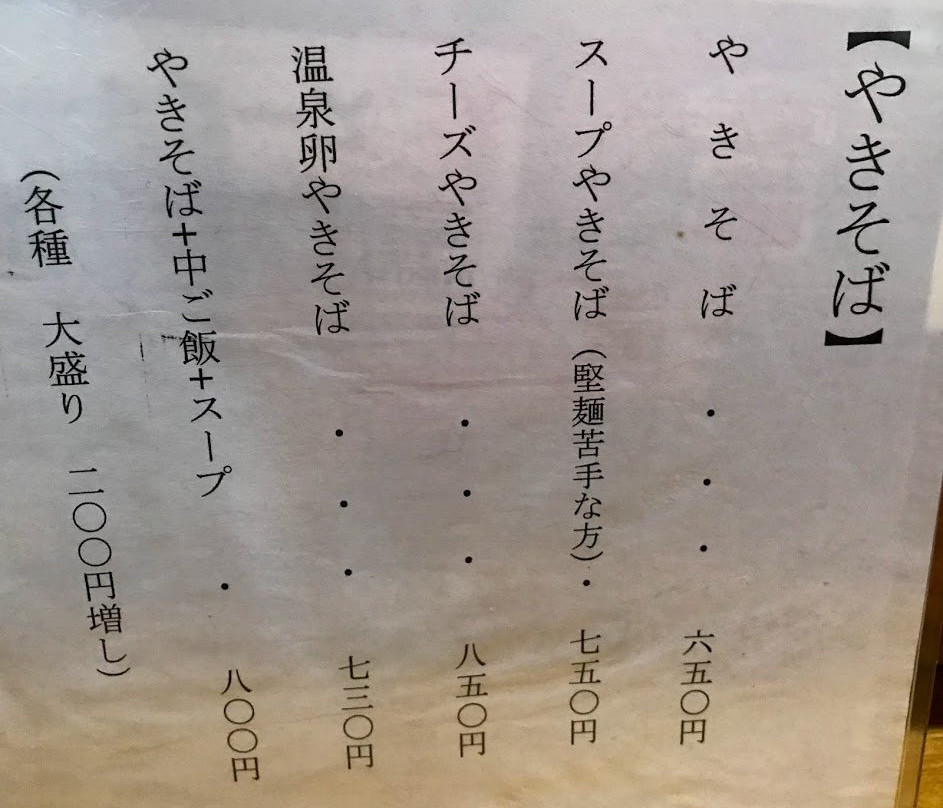 【やきそば】
やきそば・・・六五〇円
スープやきそば（堅麺苦手な方）・七五〇円
チーズやきそば・・・八五〇円
温泉卵やきそば・・・七三〇円
やきそば+中ご飯+スープ・八〇〇円
（各種　大盛り　二〇〇円増し）